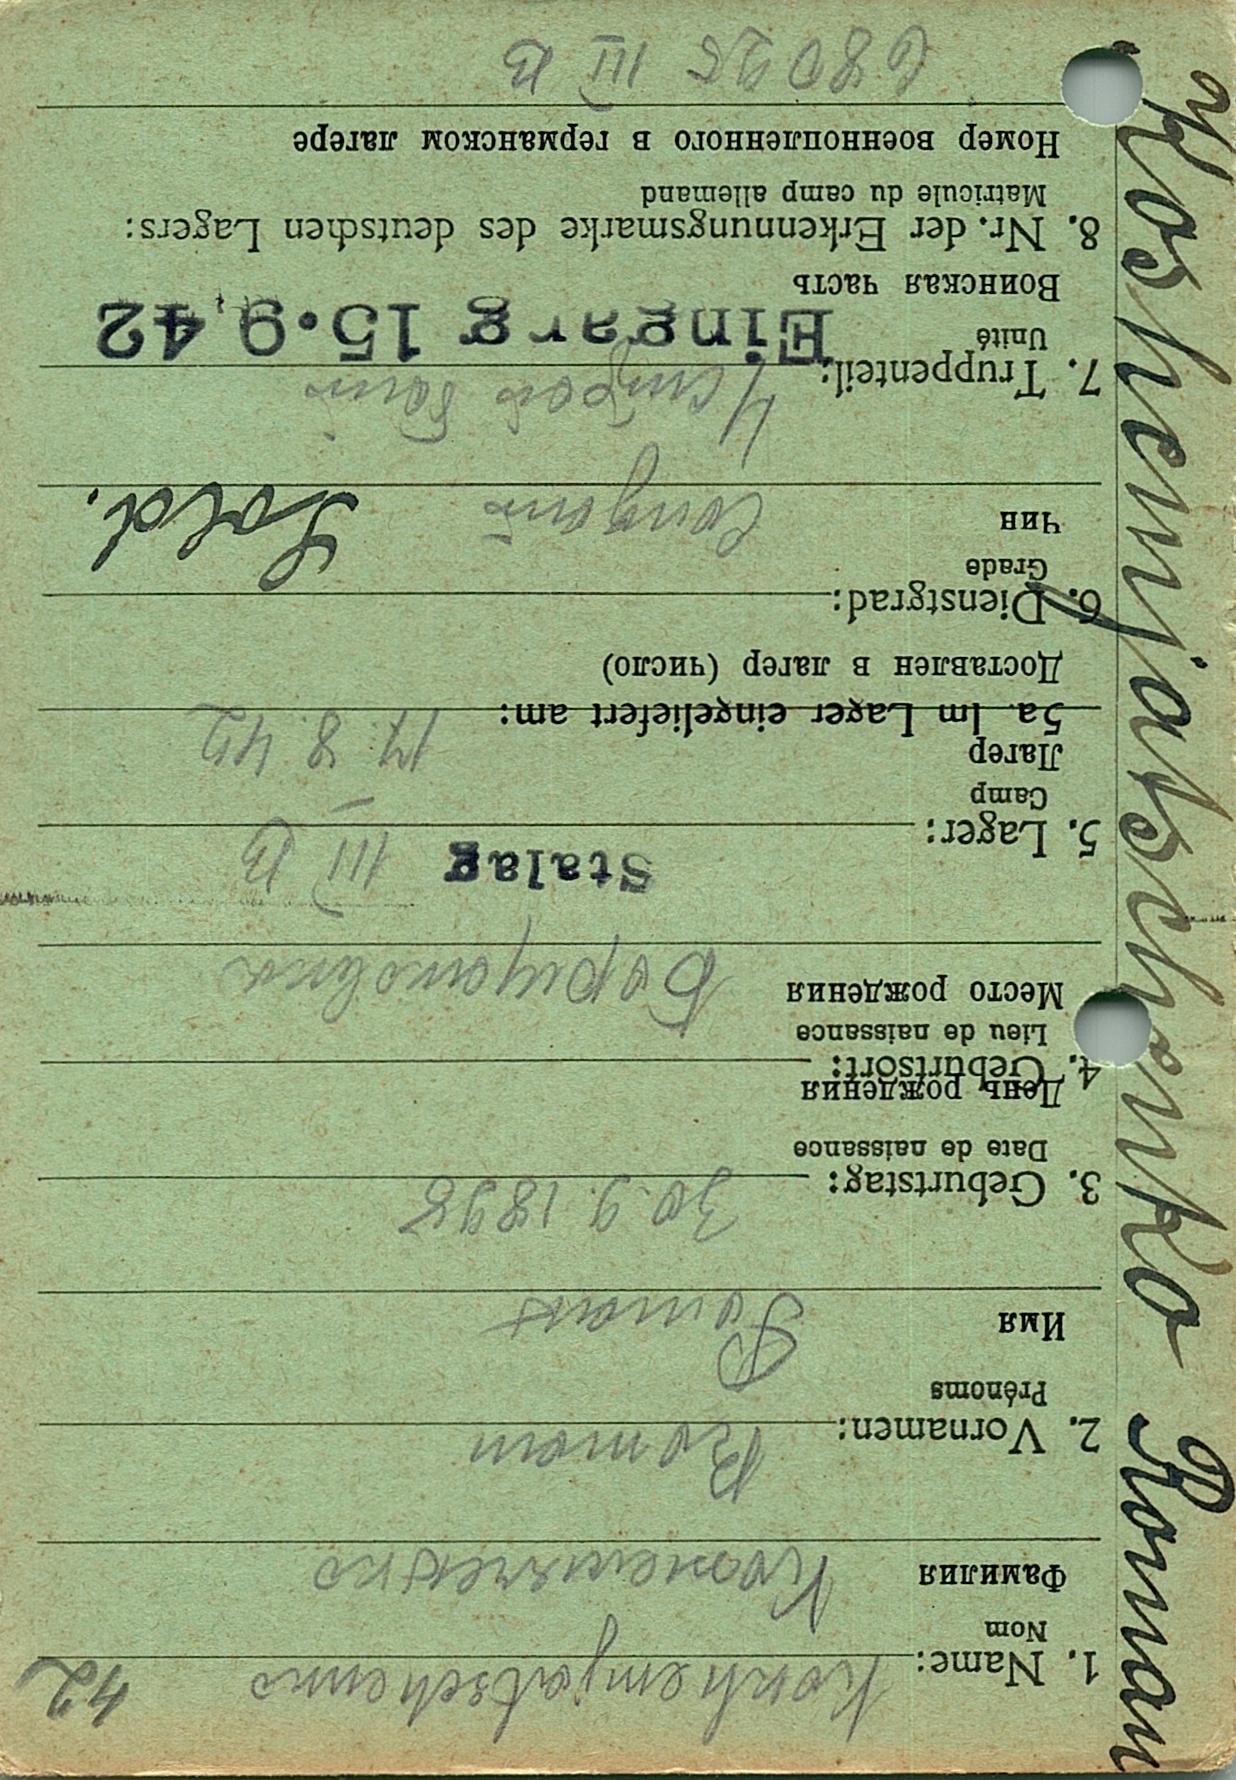 42
1. Name: Koshemjatschenko
Nom
Фамилия Кожемяченко
2. Vornamen: Roman
Prénoms
Имя Роман
3. Geburtstag: 30.9.1898
Date de naissance
День рождения
4. Geburtsort:
Lieu de naissance
Место рождения
5. Lager: Stalag III B
Camp
Лагер
5a. Im Lager eingeliefert am: 17.8.42
Доставлен в лагер (число)
6. Dienstgrad: Sold.
Grade
Чин солдат
7. Truppenteil: Eingang 15.9.42
Unité
Воинская часть
8. Nr. der Erkennungsmarke des deutschen Lagers:
Matricule du camp allemand
Номер военнопленного в германском лагере
III B
Koshemjatschenko Roman